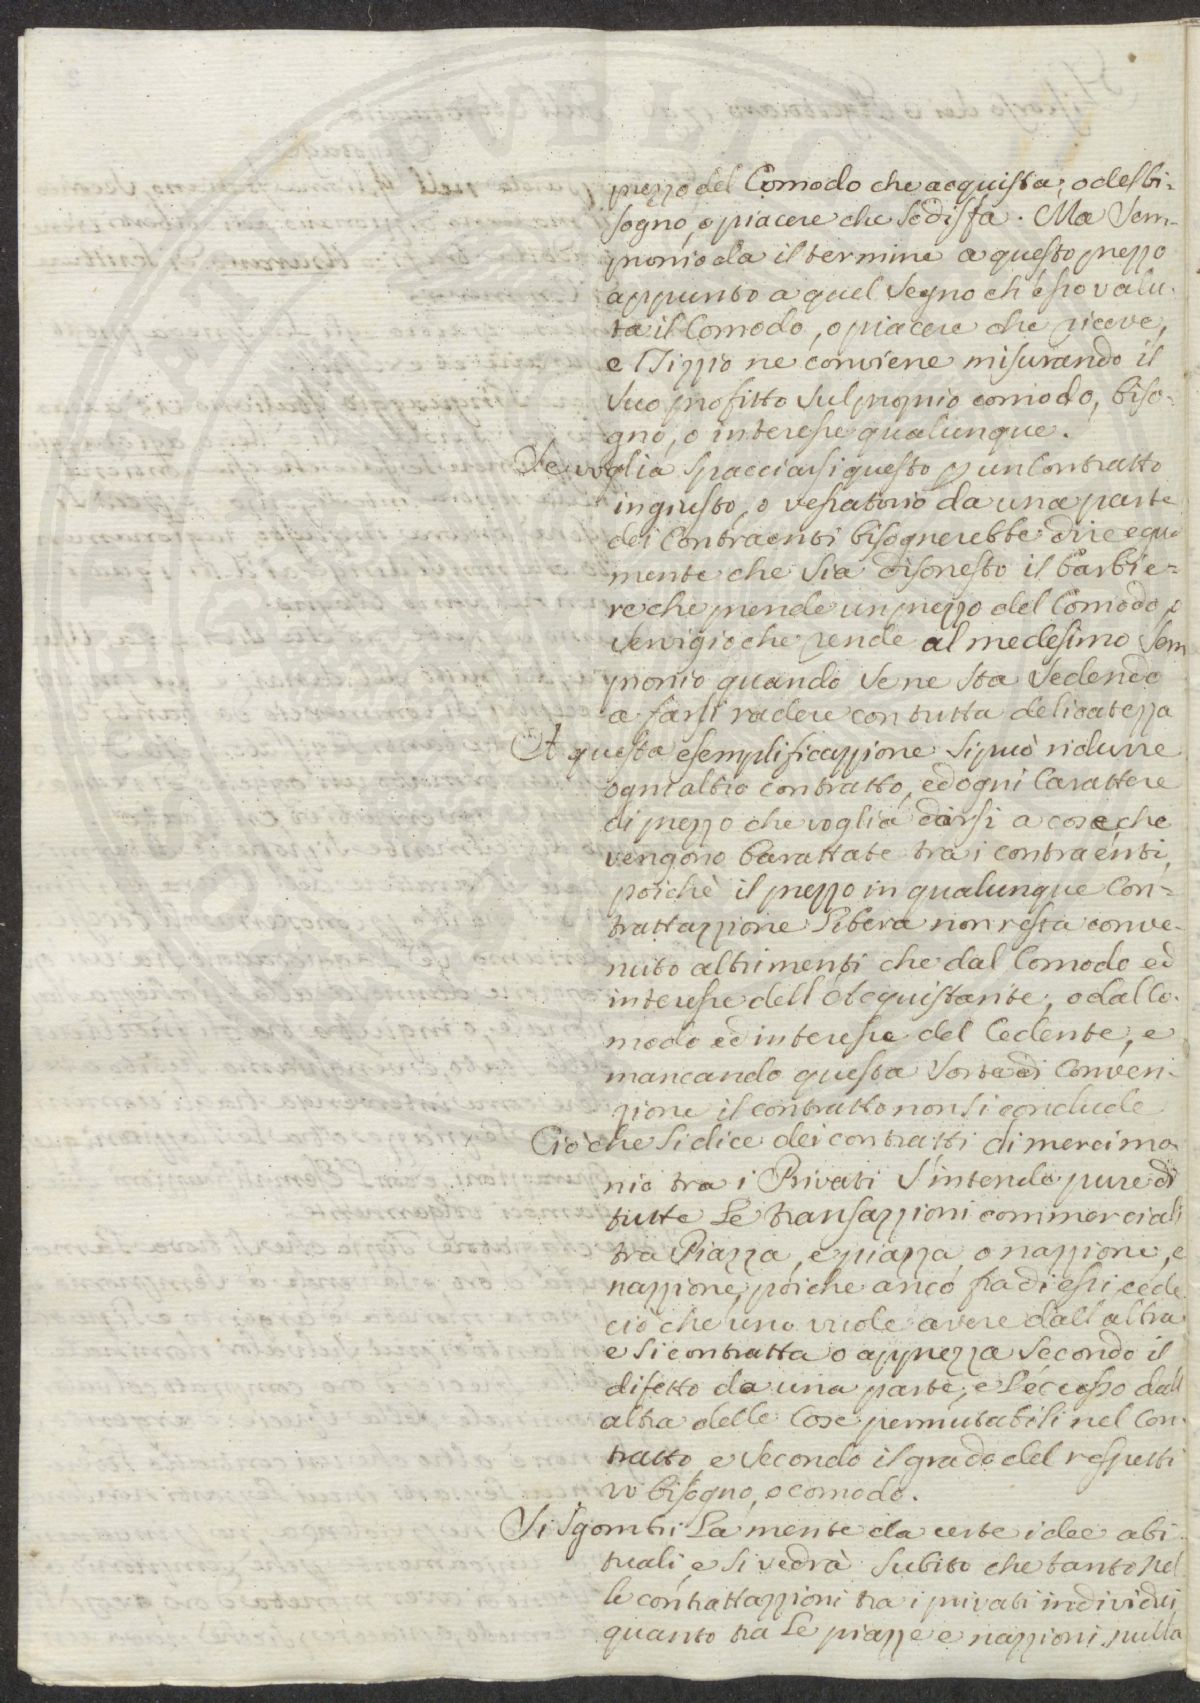 prezzo del Comodo che acquista, o del bi-
sogno, o piacere che sodisfà. Ma Sem-
pronio dà il termine a questo prezzo
appunto a quel segno ch'esso valu-
ta il Comodo, o piacere che riceve,
e Tizzio ne conviene misurando il
suo profitto sul proprio comodo, biso-
gno, o interesse qualunque.
Se voglia spacciarsi questo p un Contratto
ingiusto, o vessatorio da una parte
dei Contraenti bisognerebbe dire equa
mente che sia disonesto il Barbie-
re che prende un prezzo del Comodo, o
servigio che rende al medesimo Sem
pronio quando se ne sta sedendo
a farsi radere con tutta delicatezza
A questa esemplificazzione si può ridurre
ogni altro contratto, ed ogni Carattere
di prezzo che voglia darsi a cose che
vengono barattate tra i contraenti,
poichè il prezzo in qualunque Con-
trattazzione Libera non resta conve-
nuto altrimenti che dal Comodo ed
interesse dell'Acquistante, o dal Co-
modo ed interesse del Cedente, e
mancando questa sorte di Conven-
zione il contratto non si conclude
Ciò che si dice dei contratti di mercimo-
nio tra i Privati s'intende pure di
tutte Le transazzioni commerciali
tra Piazza, e piazza, o nazzione, e
nazzione, poiche ancò fra di essi cede
ciò che uno vuole avere dall'altra
e si contratta o apprezza secondo il
difetto da una parte, e l'eccesso dall'
altra delle Cose permutabili nel Con-
tratto e secondo il grado del respetti
vo bisogno, o comodo.
Si sgombri La mente da certe idee abi-
tuali, e si vedrà subito che tanto nel
le contrattazzioni tra i privati individui
quanto tra Le piazze e nazzioni nulla